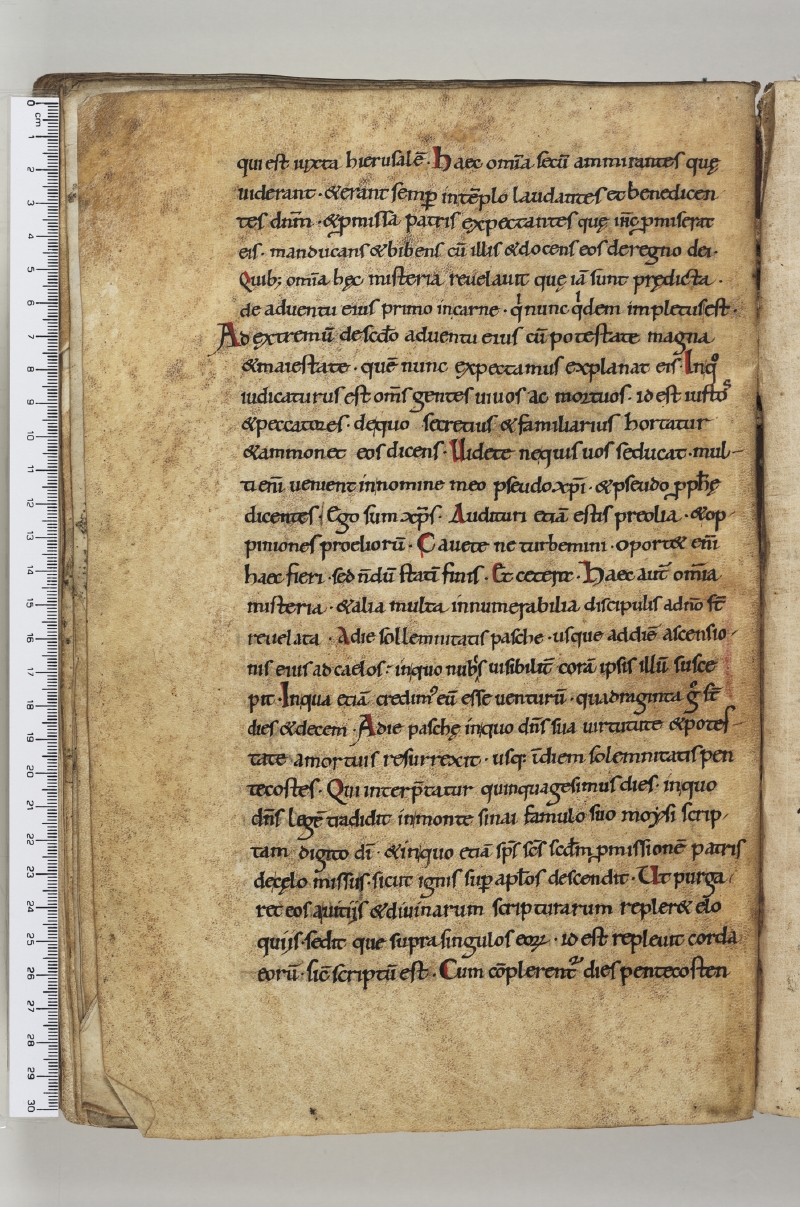 qui est iuxta hierusalē· Haec om̄ia secū ammirantes quę
uiderant· &erant semꝑ intēplo laudantes et benedicen
tes dn̄m· &ꝓmissā patris expectantes quę in̄c ꝓmiserat
eis· manducans &bibens cū illis &docens eos deregno dei·
Quib; om̄ia hęc misteria reuelauit que iā sunt prędicta·
de aduentu eius primo incarne· qͥ nunc qͥdem impletus est·
Ad extremū descd̄o aduentu eius cū potestate magna
&maiestate· quē nunc expectamus explanat eis· Inqͦ
iudicaturus est om̄s gentes uiuos ac mortuos· id est iustoˢ
&peccatores· dequo secretius &familiarius hortatur
&ammonet eos dicens· Uidete nequis uos seducat· mul-
ti eni̅ uenient innomine meo pseudoxp̄i· &pseudo ꝓph̄ę
dicentes· Ego sum xp̄s· Audituri etiā estis preolia· &op-
piniones proeliorū· Cauete ne turbemini· oport& eni̅
haec fieri· sed n̄dū statī finis· Et ceter̄· Haec aut̄ om̄ia
misteria· &alia multa innumerabilia discipulis adn̄o st̄
reuelata· Adie sollemnitatis pasche· usque addiē ascensio-
nis eius ad caelos· inquo nubˢ uisibilit̄ corā ipsis illū susce
pit· Inqua etiā credim᾽ eū esse uenturū· quadraginta gͦ st̄
dies &decem· Adie paschę inquo dn̄s sua uirtutute &potes-
tate amortuis resurrexit· usq; īdiem solemnitatis pen
tecostes· Qui interp̄tatur quinquagesimus dies· inquo
dn̄s legē tradidit inmonte sinai famulo suo moysi scrip-
tam digito dī· &inquo etiā sp̄s sc̄s scd̄m ꝓmissionē patris
decęlo missus· sicut ignis suꝑ apl̄os descendit· Ut purga-
ret eos auitijs &diuinarum scripturarum repler& elo
quijs· sedit que supra singulos eoꝝ· id est repleuit corda
eorū· sic̄ scriptū est· Cum cōplerent᾽ dies pentecosten